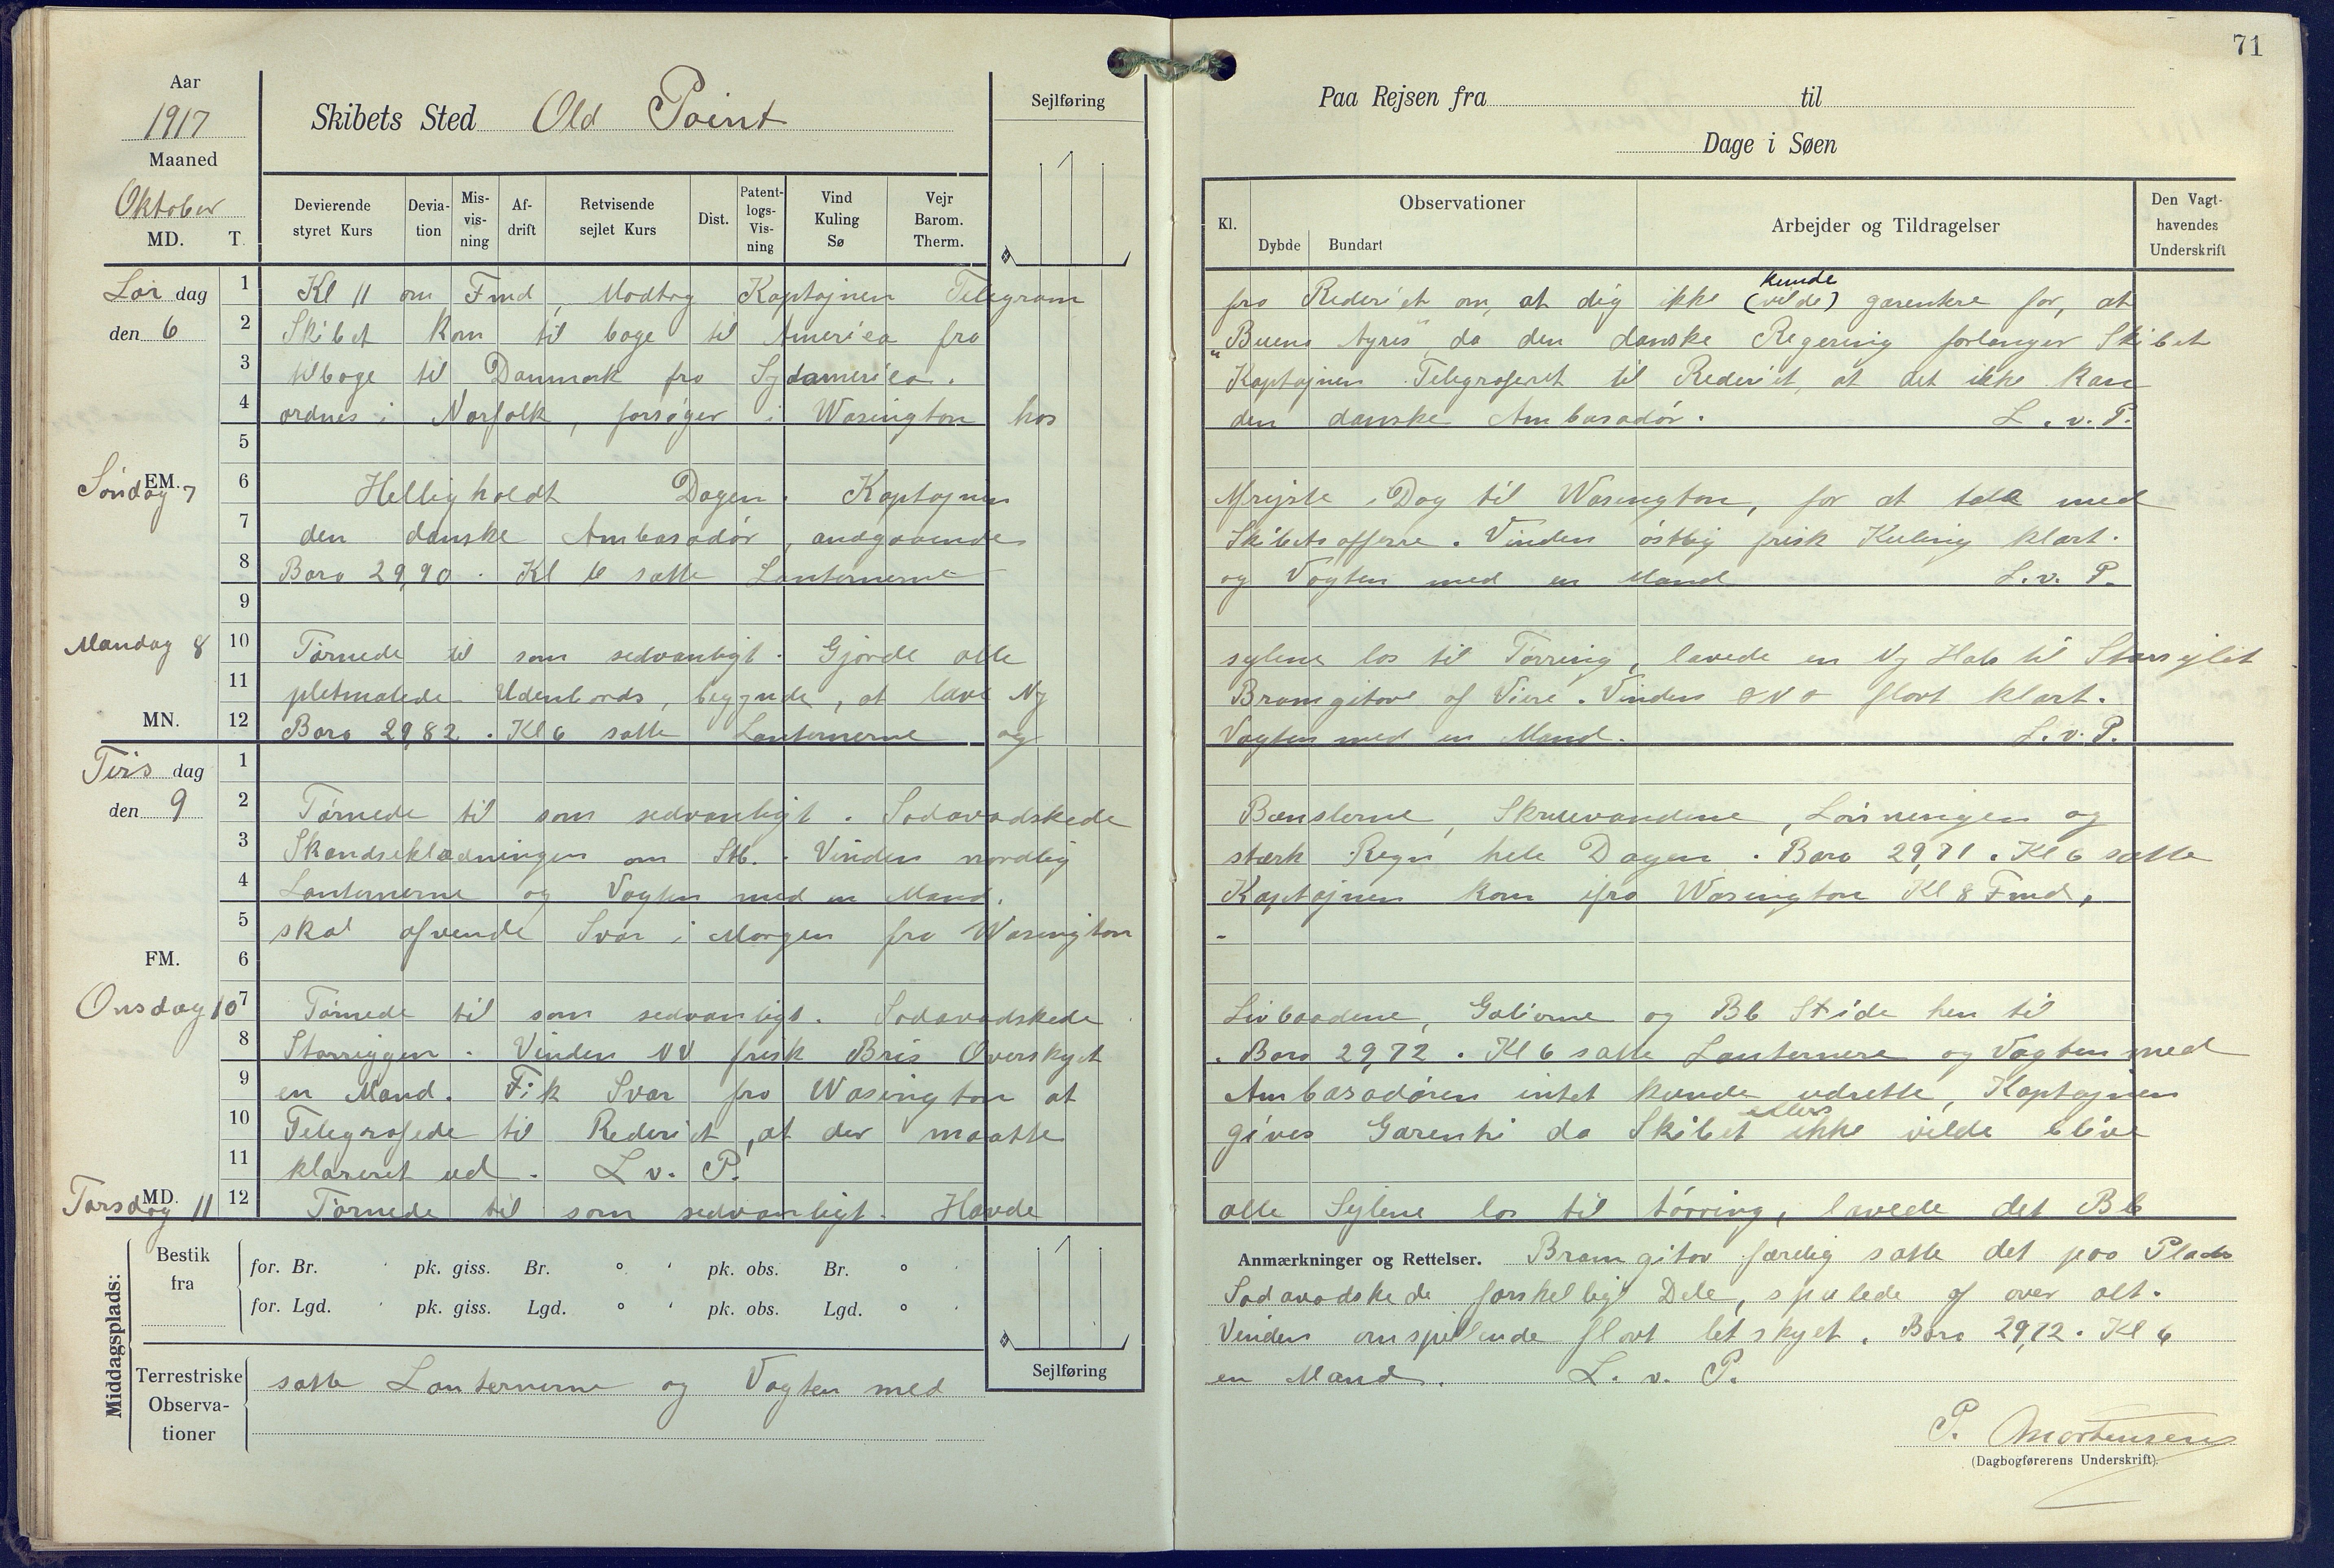 71
Aar
1917
Maaned
Oktober
MD. T.
Skibets Sted Old Point
Sejlføring
Paa Rejsen fra til
Dage i Søen
Devierende styret Kurs
Devia-tion
Mis-vis-ning
Af-drift
Retvisende sejlet Kurs
Dist.
Patent-logs-Vis-ning
Vind Kuling Sø
Vejr Barom. Therm.
Kl.
Observationer
Dybde Bundart
Arbejder og Tildragelser
Den Vagt-havendes Underskrift
Lør dag
den 6
1 Kl 11 om Fmd, Modtog Kaptajnen Telegram fra Rederiet om, at dig ikke (vilde) kunde garentere for, at
2 Skibet kom til bage til America fra "Buens Ayres" da den danske Regering forlanger Skibet
3 tilbage til Danmark fra Sydamerica. Kaptajnen Telegraferet til Rederiet, at det ikke kan
4 ordnes i Norfolk, forsøger i Wasington hos den danske Ambasadør. L. v. P.
5
EM.
Søndag 7
6 Helligholdt Dagen. Kaptajnen Afrejste i Dag til Wasington, for at tale med
7 den danske Ambasadør, andgaaende Skibets affere. Vinden østlig frisk Kuling klart.
8 Baro 29,90. Kl 6 satte Lanternerne og Vagten med en Mand L. v. P.
9
Mandag 8
10 Tørnede til som sedvanligt. Gjorde alle sejlene los til Tørring, lavede en Ny Hals til Storsejlet
11 pletmalede Udenbords, begynde, at lave Ny Bramgitov af Viere. Vinden ONO flovt klart.
MN.
12 Baro 29,82. Kl 6 satte Lanternerne og Vagten med en Mand. L. v. P.
Tirs dag
den 9
1
2 Tørnede til som sedvanligt. Sodavadskede Bænslerne, Skruevandene, Lønningen og
3 Skandseklædningen om Stb. Vinden nordlig stærk Regn hele Dagen. Baro 29,71. Kl 6 satte
4 Lanternerne og Vagten med en Mand. Kaptajnen kom ifra Wasington Kl 8 Fmd,
5 skal afvende Svar i Morgen fra Wasington -
FM.
6
Onsdag 10
7 Tørnede til som sedvanligt. Sodavadskede Livbaadene, Galierne og Bb Side hen til
8 Storriggen. Vinden NV frisk Bris Overskyet. Baro 29,72. Kl 6 satte Lanternere og Vagten med
9 en Mand. Fik Svar fra Wasington at Ambasadøren intet kunde udrette, Kaptajnen
10 Telegrafede til Rederiet, at der maatte gives Garenti da Skibet ellers ikke vilde blive
11 klareret ud. L v. P.
MD.
Torsdag 11
12 Tørnede til som sedvanligt. Havde alle Sejlene los til tørring, lavede det Bb
Middagsplads:
Bestik fra
for. Br. ' pk. giss. Br. ° ' pk. obs. Br. ° '
for. Lgd. ' pk. giss. Lgd. ° ' pk. obs. Lgd. ° '
Sejlføring
Anmærkninger og Rettelser. Bramgitov færdig satte det paa Plads
Sodavadskede forskelligt Dele, spulede af over alt.
Vinden omspillende flovt letskyet. Baro 29,72. Kl 6
Terrestriske Observa-tioner
satte Lanternerne og Vagten med en Mand. L. v. P.
P. Mortensen
(Dagbogførerens Underskrift).